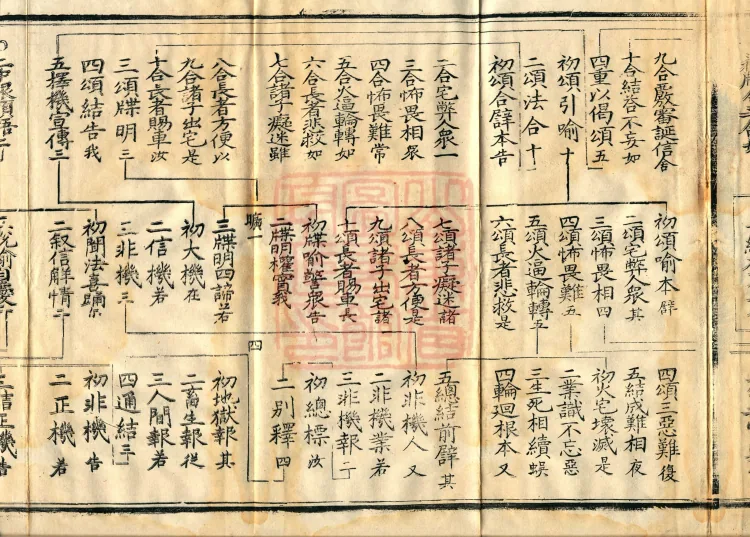 九合嚴審誕信舍
十合結荅不妄如
四重以偈頌五
初頌引喻十
二頌法合十一
初頌合譬本告
二合宅弊人衆一
三合怖畏相衆
四合怖畏難常
五合火逼輪轉如
六合長者悲救如
七合諸子癡迷雖
八合長者方便以
九合諸子出宅是
十合長者賜車汝
三頌牒明三
四頌結告我
五擇機宣傳三
初頌喻本譬
二頌宅弊人衆其
三頌怖畏相四
四頌怖畏難五
五頌火逼輪轉五
六頌長者悲救是
七頌諸子癡迷諸
八頌長者方便是
九頌諸子出宅諸
十頌長者賜車長
初牒喻警衆告
二牒明權實我
曠一
三牒明四諦若
初大機在
二信機若
三非機三
初聞法喜踊尒
二叙信解情二
四頌三惡難復
五結成難相夜
初火宅壞滅是
二業識不忘惡
三生死相續蜈
四輪迴根本又
五總結前譬其
初非機人又
二非機業若
三非機報二
初總標汝
二別釋四
四
初地獄報其
二畜生報從
三人間報若
四通結三
初非機告
二正機若